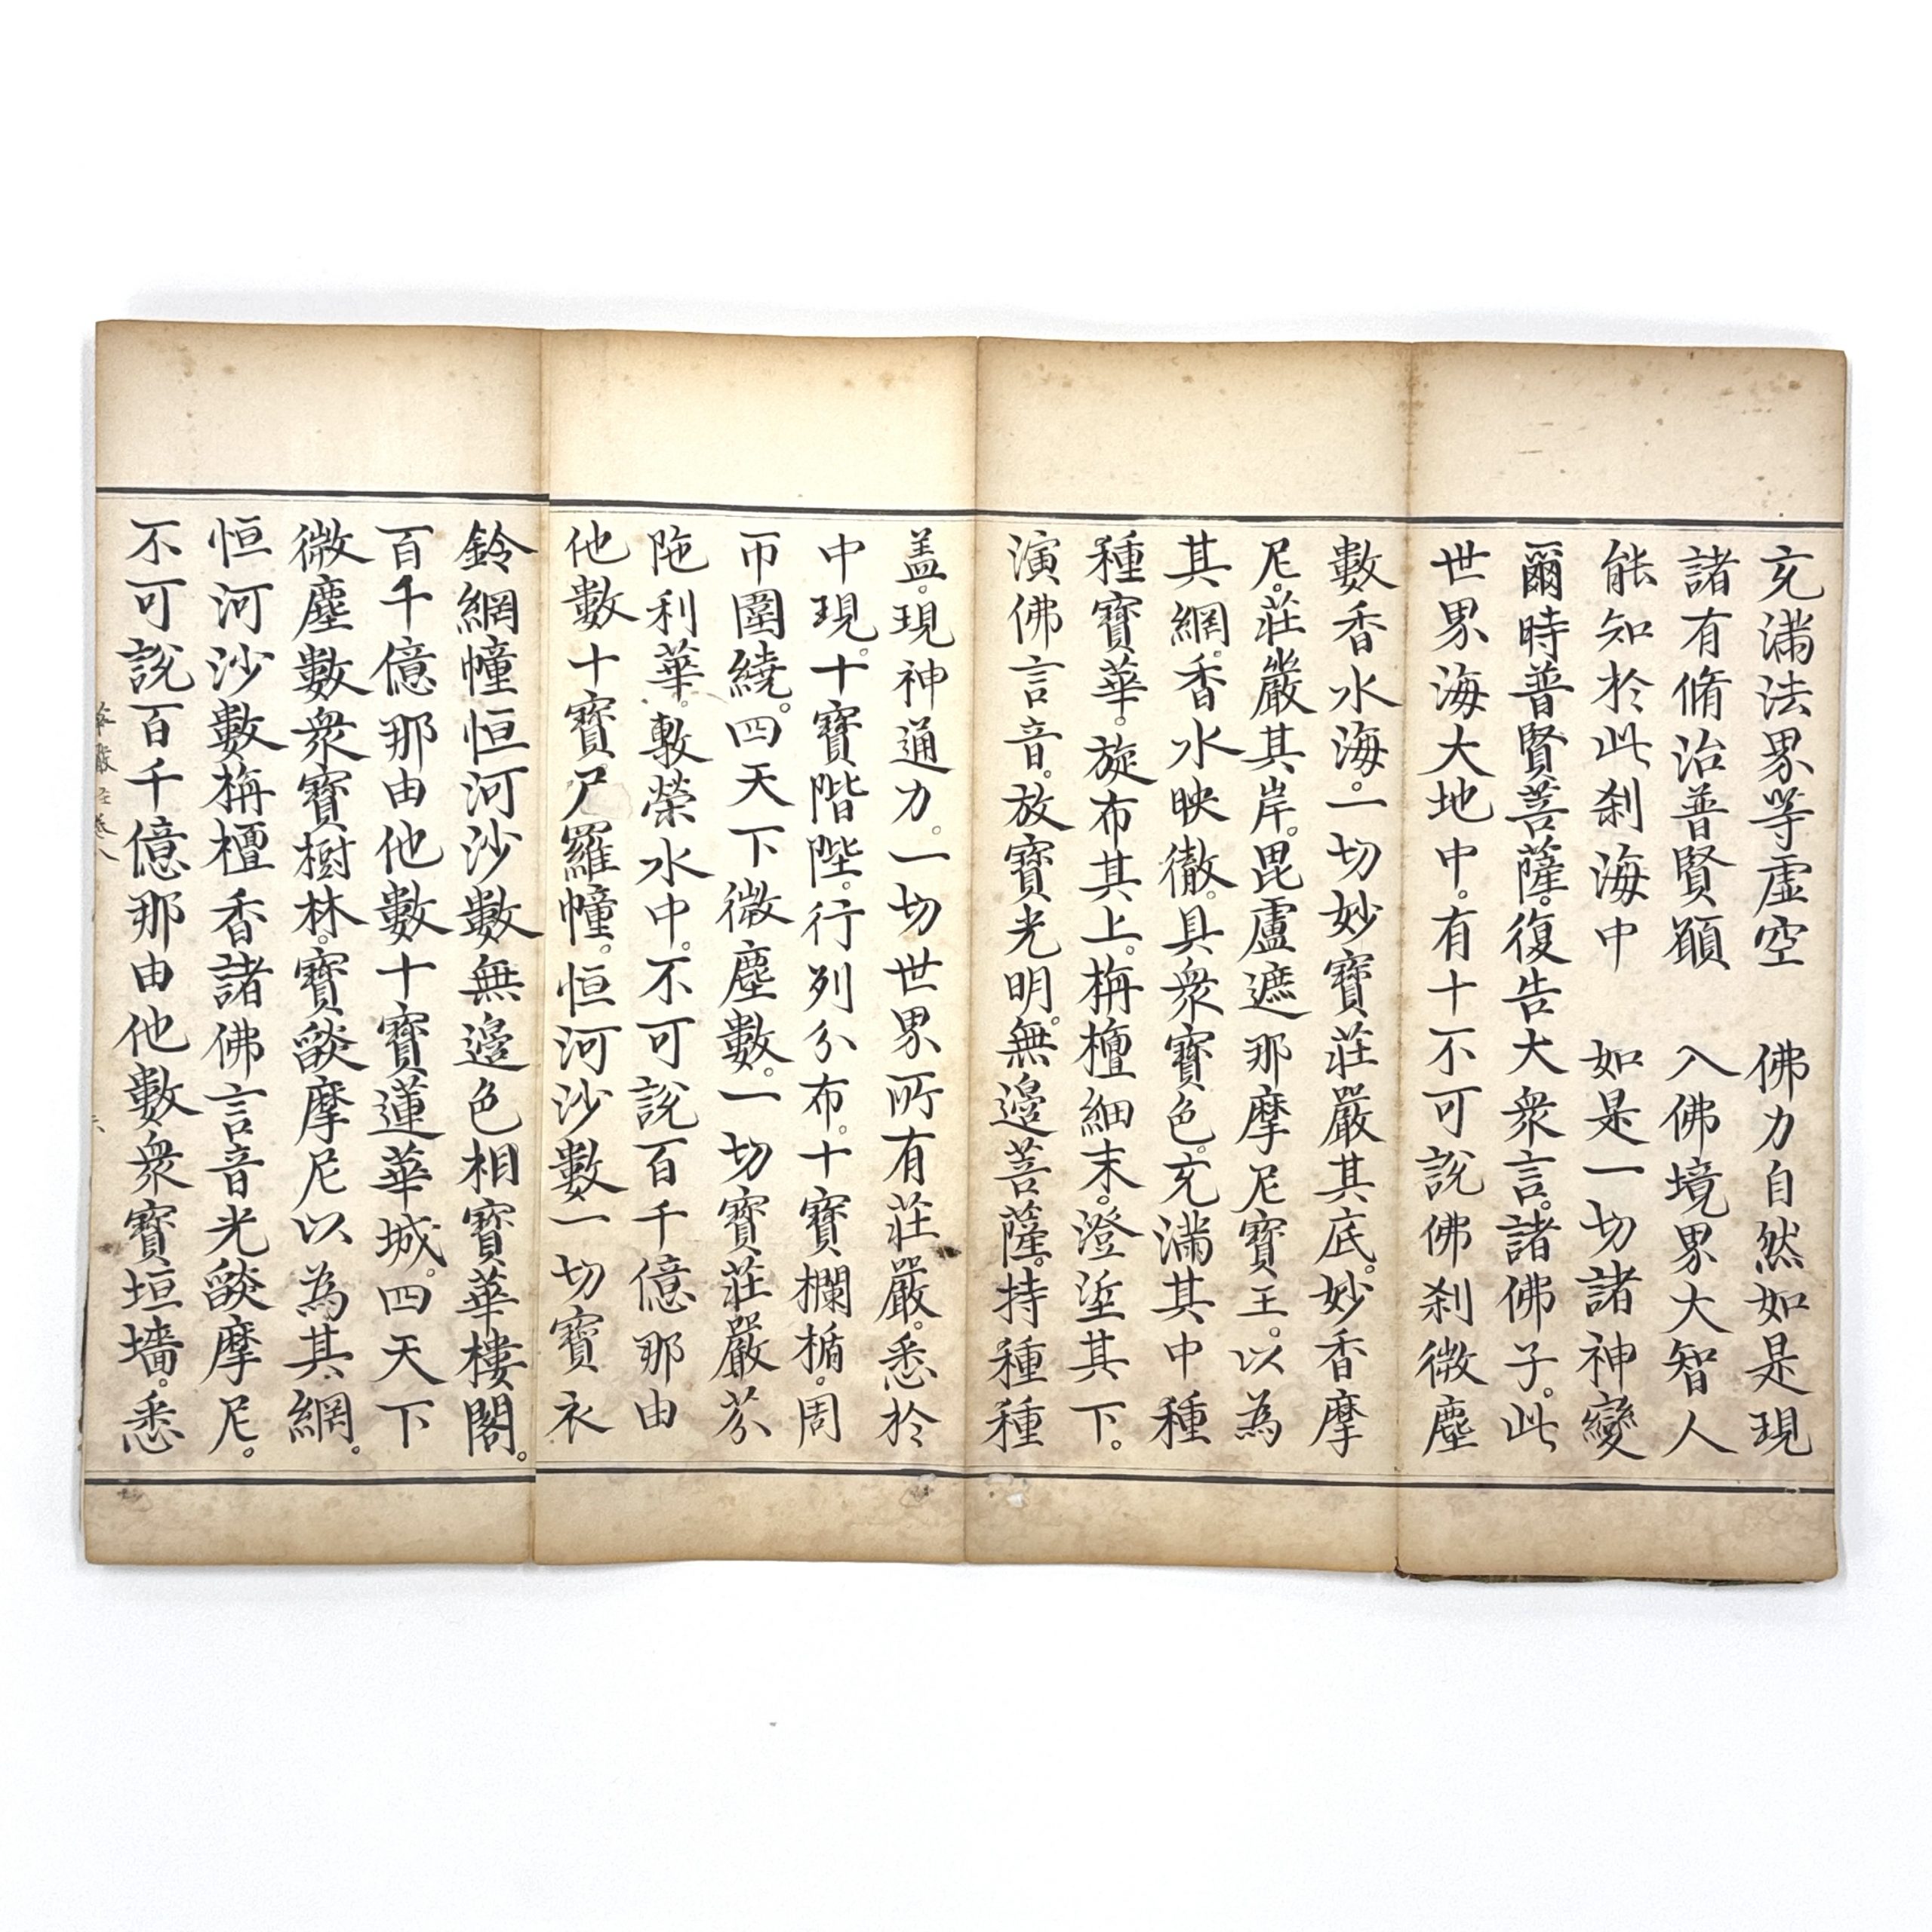 充滿法界等虛空　佛力自然如是現
諸有脩治普賢願　入佛境界大智人
能知於此剎海中　如是一切諸神變
爾時普賢菩薩。復告大衆言。諸佛子。此
世界海大地中。有十不可說佛剎微塵
數香水海。一切妙寶莊嚴其底。妙香摩
尼。莊嚴其岸。毘盧遮那摩尼寶王。以為
其網。香水映徹。具衆寶色。充滿其中種
種寶華。旋布其上。栴檀細末。澄垽其下。
演佛言音。放寶光明。無邊菩薩。持種種
盖。現神通力。一切世界所有莊嚴。悉於
中現。十寶階陛。行列分布。十寶欄楯。周
帀圍繞。四天下微塵數。一切寶莊嚴芬
陁利華。敷榮水中。不可說百千億那由
他數十寶尸羅幢。恒河沙數一切寶衣
鈴網幢恒河沙數無邊色相寶華樓閣。
百千億那由他數十寶蓮華城。四天下
微塵數衆寶樹林。寶燄摩尼以為其網。
恒河沙數栴檀香諸佛言音光燄摩尼。
不可說百千億那由他數衆寶垣墻。悉
華嚴経卷八